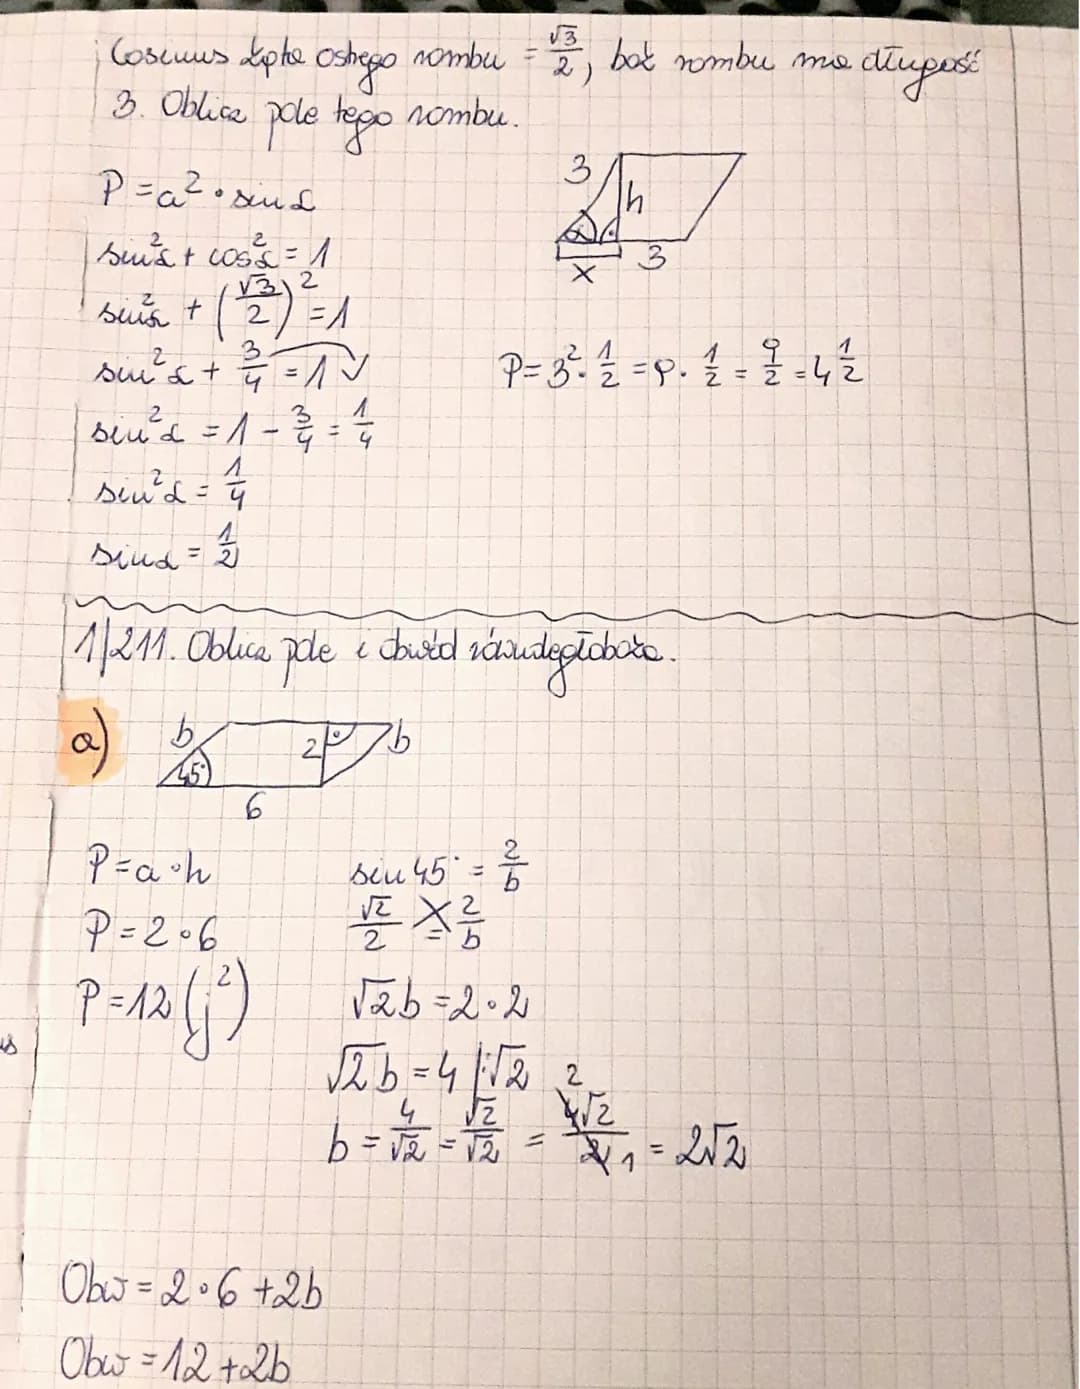 Cosinus kąta ostrego rombu = √3/2, bok rombu ma długość
3. Oblicz pole tego rombu.
P = a² · sin α
sin²α + cos²α = 1
sin²α + (√3/2)² = 1
sin²α + 3/4 = 1
sin²α = 1 - 3/4 = 1/4
sin²α = 1/4
sin α = 1/2
3
h
α
x
3
P = 3² · 1/2 = 9 · 1/2 = 9/2 = 4 1/2
1/211. Oblicz pole i obwód równoległoboku.
a)
b
45°
2
b
6
P = a · h
P = 2 · 6
P = 12 (j²)
sin 45° = 2/b
√2/2 = 2/b
√2 b = 2 · 2
√2 b = 4 |:√2
b = 4/√2 = √2/√2 = 4√2/2 2 1 = 2√2
Obw = 2 · 6 + 2b
Obw = 12 + 2b